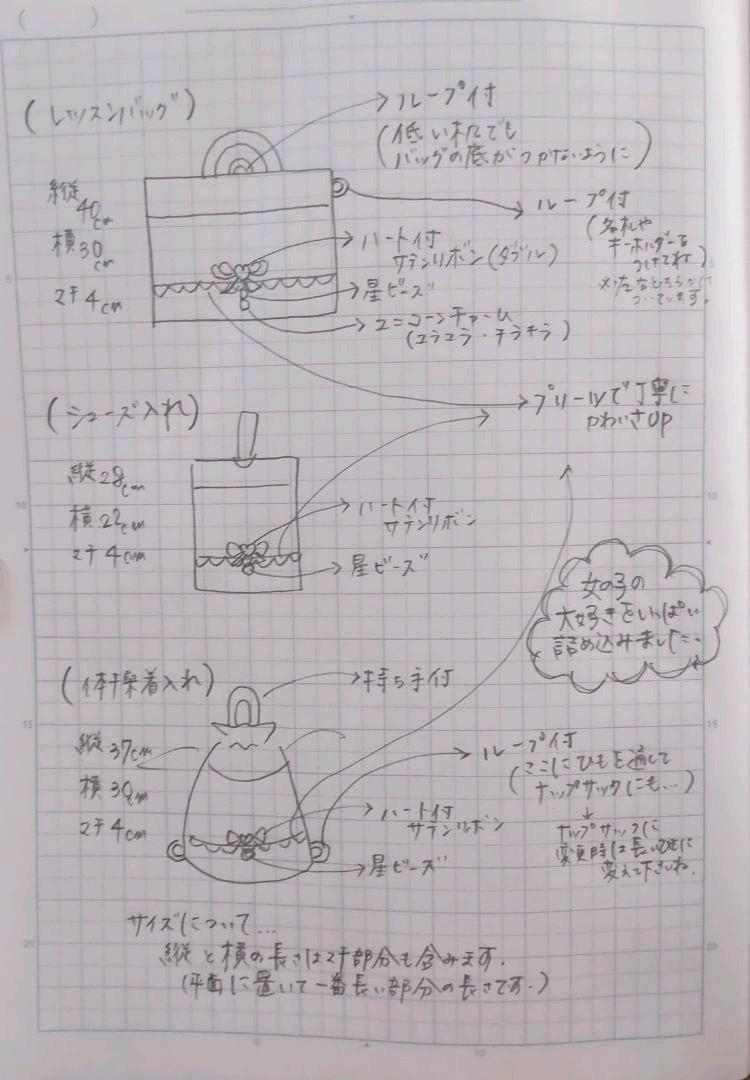 (レッスンバッグ)
ループ付
(低い机でも
バッグの底がつかないように)
縦
40cm
横30cm
マチ4cm
ループ付
(名札や
キーホルダーを
つけてね)
※左右どちらかに
ついています。
ハート付
サテンリボン(ダブル)
星ビーズ
ユニコーンチャーム
(ユラユラ・キラキラ)
プリーツで丁寧に
かわいさUP
(シューズ入れ)
縦28cm
横22cm
マチ4cm
ハート付
サテンリボン
星ビーズ
女の子の
大好きをいっぱい
詰め込みました。
(体操着入れ)
持ち手付
縦37cm
横30cm
マチ4cm
ループ付
(ここにひもを通して
ナップサックにも…)
↓
ナップサックに
変更時は長いひもに
変えて下さいね。
ハート付
サテンリボン
星ビーズ
サイズについて…
縦と横の長さはマチ部分も含みます。
(平面に置いて一番長い部分の長さです。)
5
10
15
20
5
10
15
20
5
10